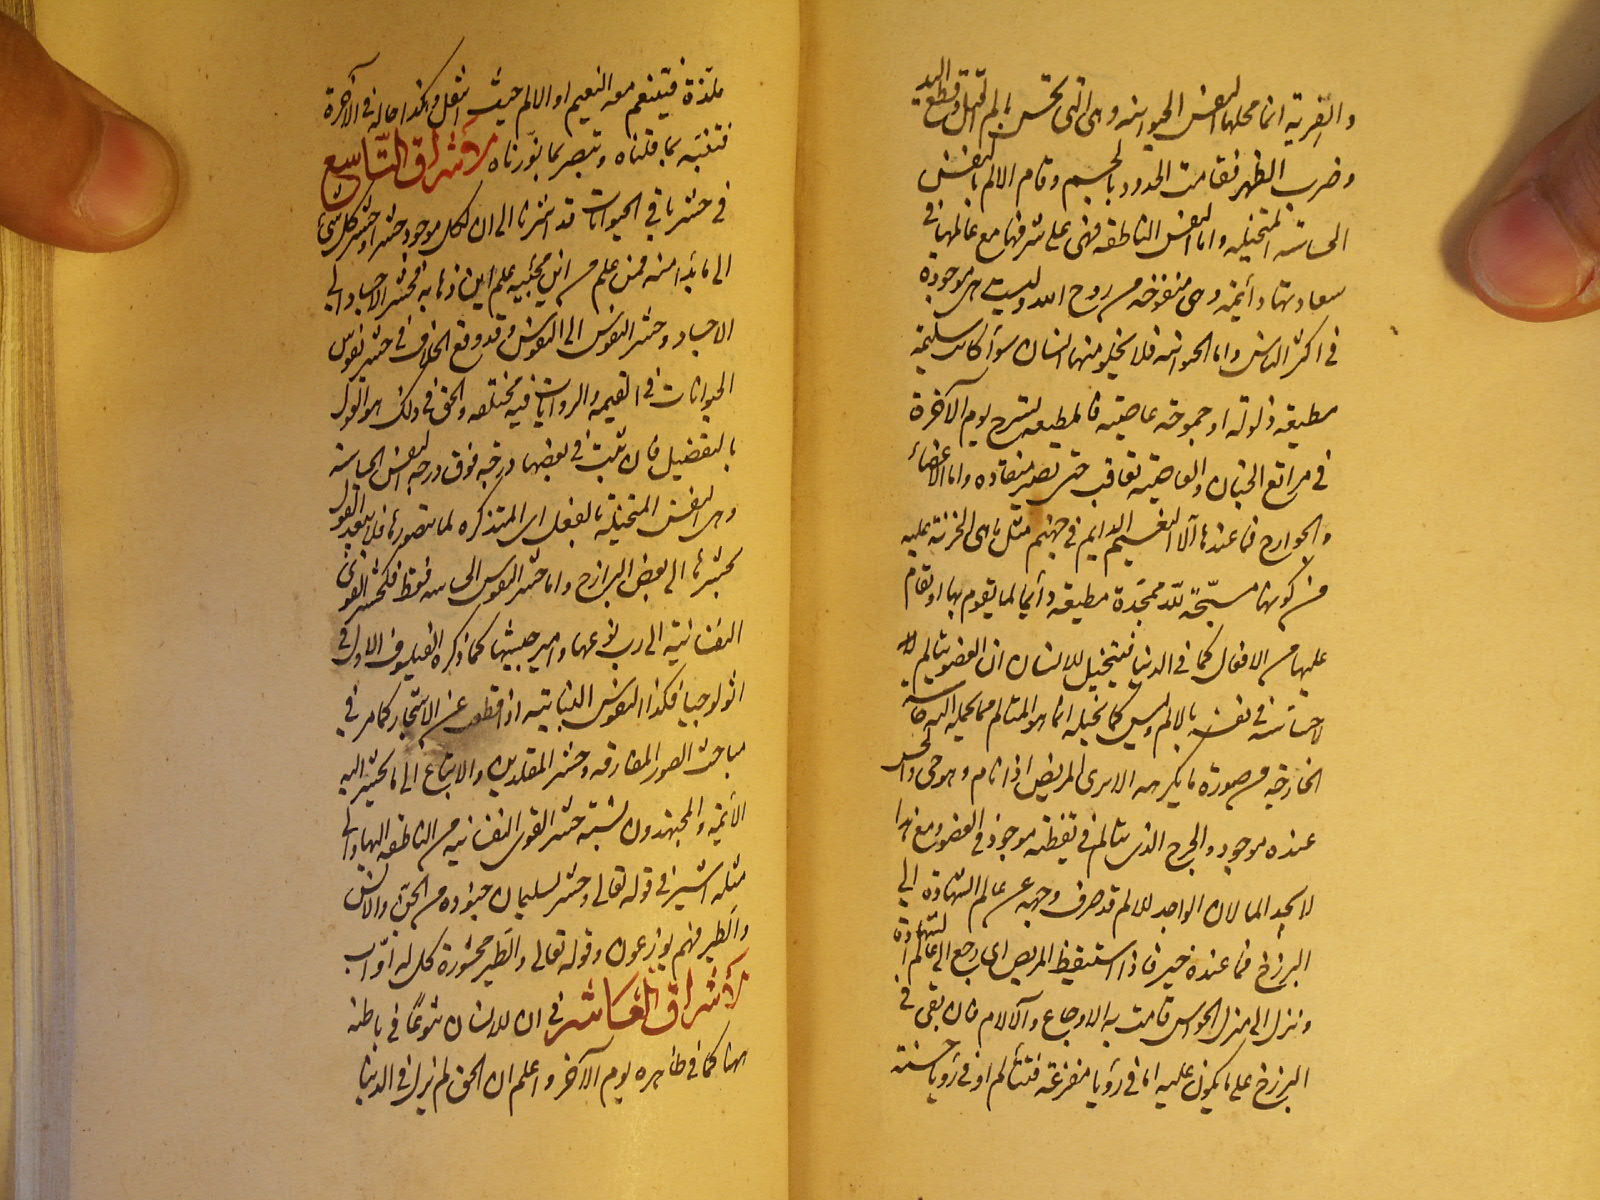 والفرية انما محلها النفس الحيوانية وهى التى تحس بالم القتل وقطع اليد
وضرب الظهر فقامت الحدود بالجسم وقام الالم بالنفس
الحاسة المتخيلة واما النفس الناطقة فهى على شرفها مع عالمها فى
سعادتها دائمة وهى منفوخة من روح الله وليست هى موجودة
فى اكثر الناس واما الحيوانية فلا يخلو منها انسان سواء كانت سليمة
مطيعة ذلولة او جموحة عاصية فالمطيعة تسرح يوم الآخرة
فى مراتع الجنان والعاصية تعاقب حتى تصير منقادة واما الاعضاء
والجوارح فما عندها الا النعيم الدايم فى جهنم مثل ما هى الخزنة عليه
من كونها مسبّحة للّه ممجّدة مطيعة دائما لما يقوم بها او يقام
عليها من الافعال كما فى الدنيا فيتخيل للانسان ان العضو يتألم
لاحساسه فى نفسه بالالم وليس كما تخيله انما هو المتألم مما تحمله الحاسة
الخارجة من صورة ما يكرهه الا ترى المريض اذا نام وهو حى والحس
عنده موجود والجرح الذى يتألم فى يقظته موجود فى العضو ومع هذا
لا يجد الما لان الواجد للالم قد صرف وجهه عن عالم الشهادة الى
البرزخ فما عنده خبر فاذا استيقظ المريض اى رجع الى عالم الشهادة
ونزل الى منزل الحواس قامت به الاوجاع والآلام فان بقى فى
البرزخ على ما يكون عليه اما فى رؤيا مفزعة فتتألم او فى رؤيا حسنة
ملذّة فيتنعم معه النعيم او الالم حيث انتقل وهكذا حاله فى الآخرة
فتنبّه بما قلناه وتبصر بما نوّرناه الاشراق التاسع
فى حشر باقى الحيوانات قد اشرنا الى ان لكل موجود حشرا وحشر كل شئ
الى ما بدأ منه فمن علم من اين مجيئه علم اين ذهابه فحشر الاجساد الى
الاجساد وحشر النفوس الى النفوس وقد وقع الخلاف فى حشر نفوس
الحيوانات فى القيمة والروايات فيه مختلفة والحق فى ذلك هو القول
بالتفصيل فان ثبت فى بعضها درجة فوق درجة النفس الحاسة
وهى النفس المتخيلة بالفعل اى المتذكرة لما تتصورها فلا يبعد القول
بحشرها الى بعض البرازخ واما حشر النفوس الحاسة فقط فكحشر القوى
النفسانية الى رب نوعها وامير جيشها كما ذكره الفيلسوف الاول فى
اثولوجيا فكذا النفوس النباتية اذا قطعت عن الاشجار كما مر فى
مباحث الصور المفارقة وحشر المقلدين والاتباع الى ما يحشر اليه
الأئمة والمجتهدون يشبه حشر القوى النفسانية من الناطقة اليها والى
مثله اشير فى قوله تعالى وحشر لسليمان جنوده من الجن والانس
والطير فهم يوزعون وقوله تعالى والطير محشورة كل له أوّاب
الاشراق العاشر فى ان للانسان تنوعًا فى باطنه
ههنا كما فى ظاهره يوم الآخر واعلم ان الحق لم يزل فى الدنيا